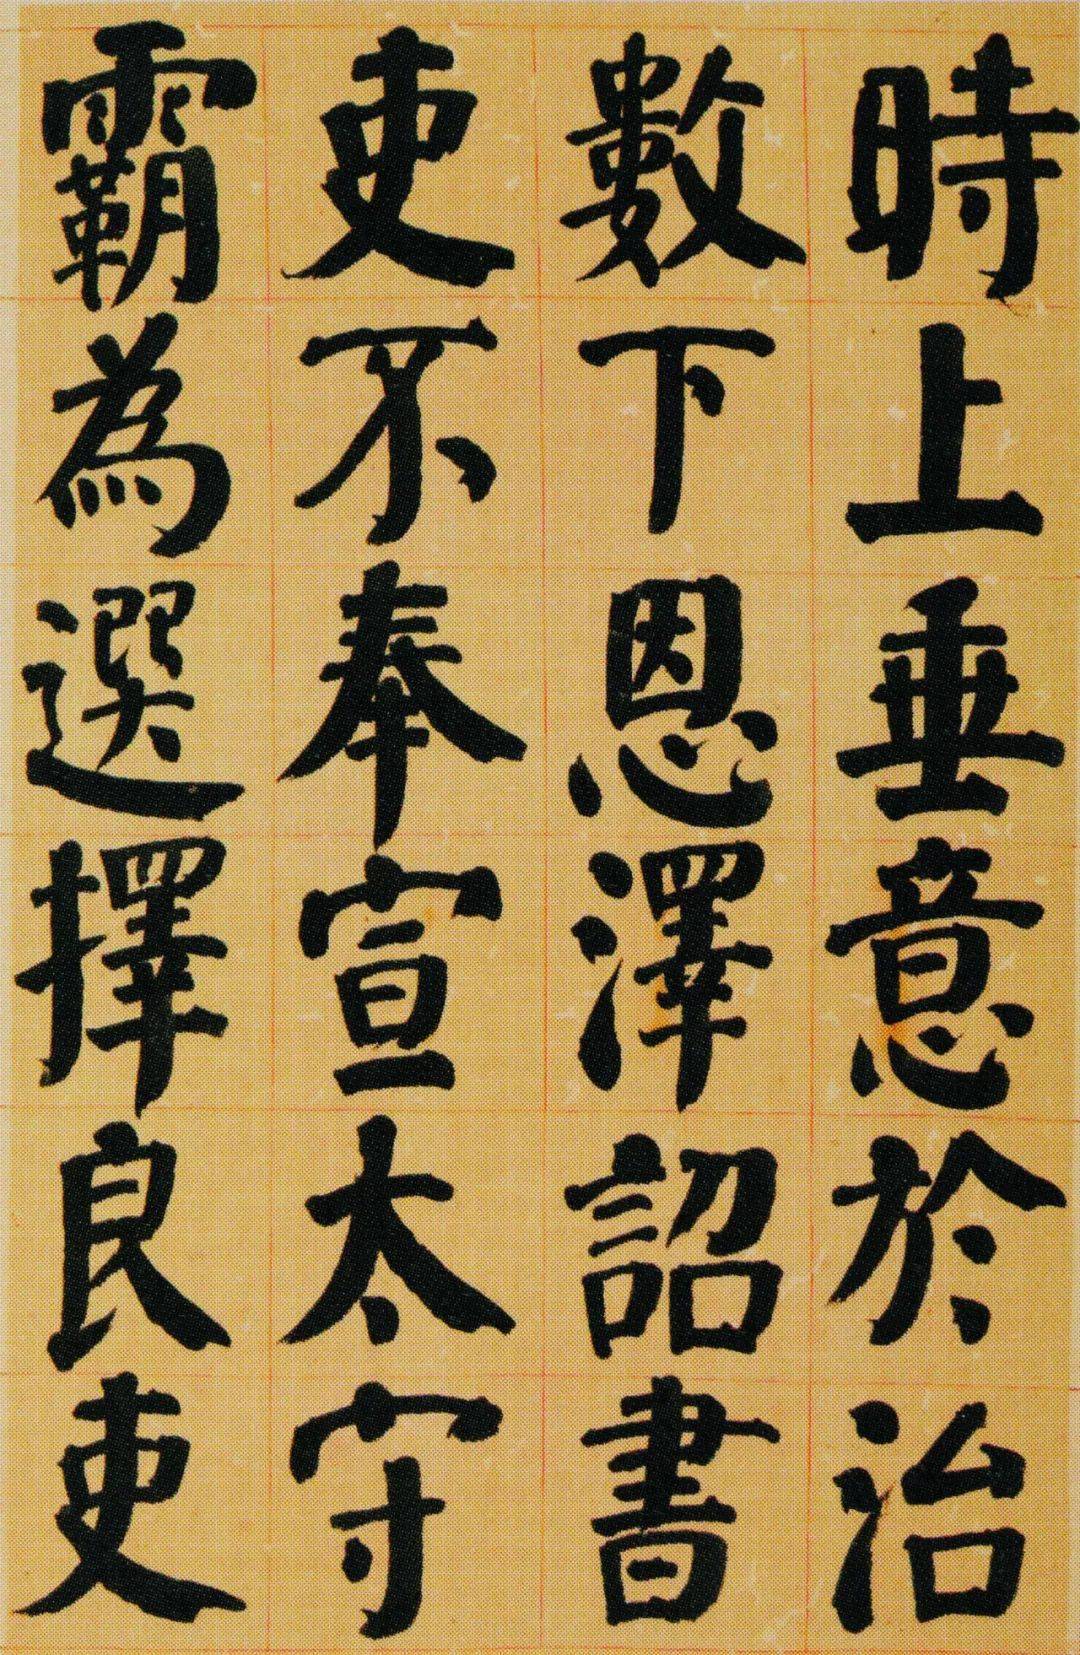 時上垂意於治
數下恩澤詔書
吏不奉宣太守
霸為選擇良吏